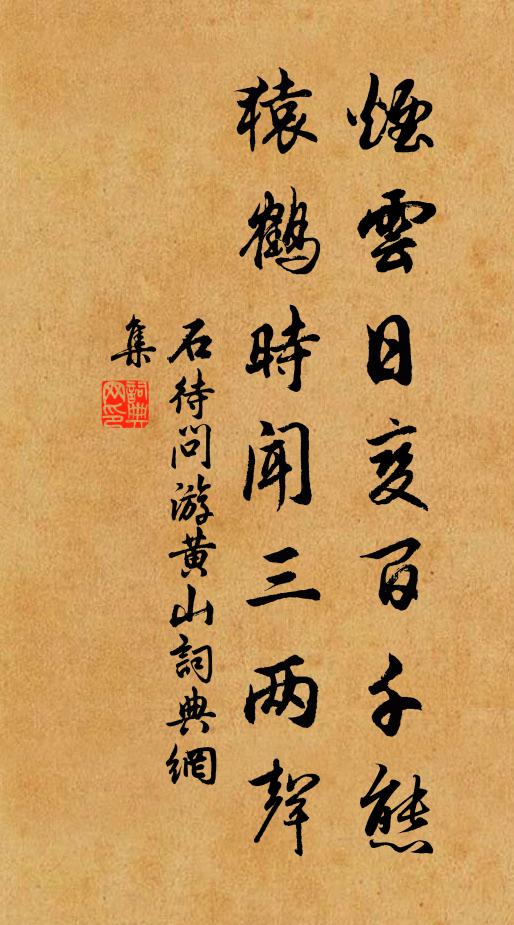 煙雲日變百千態
猿鶴時聞三兩聲
石待問游黃山詞典網
集
詞典网印